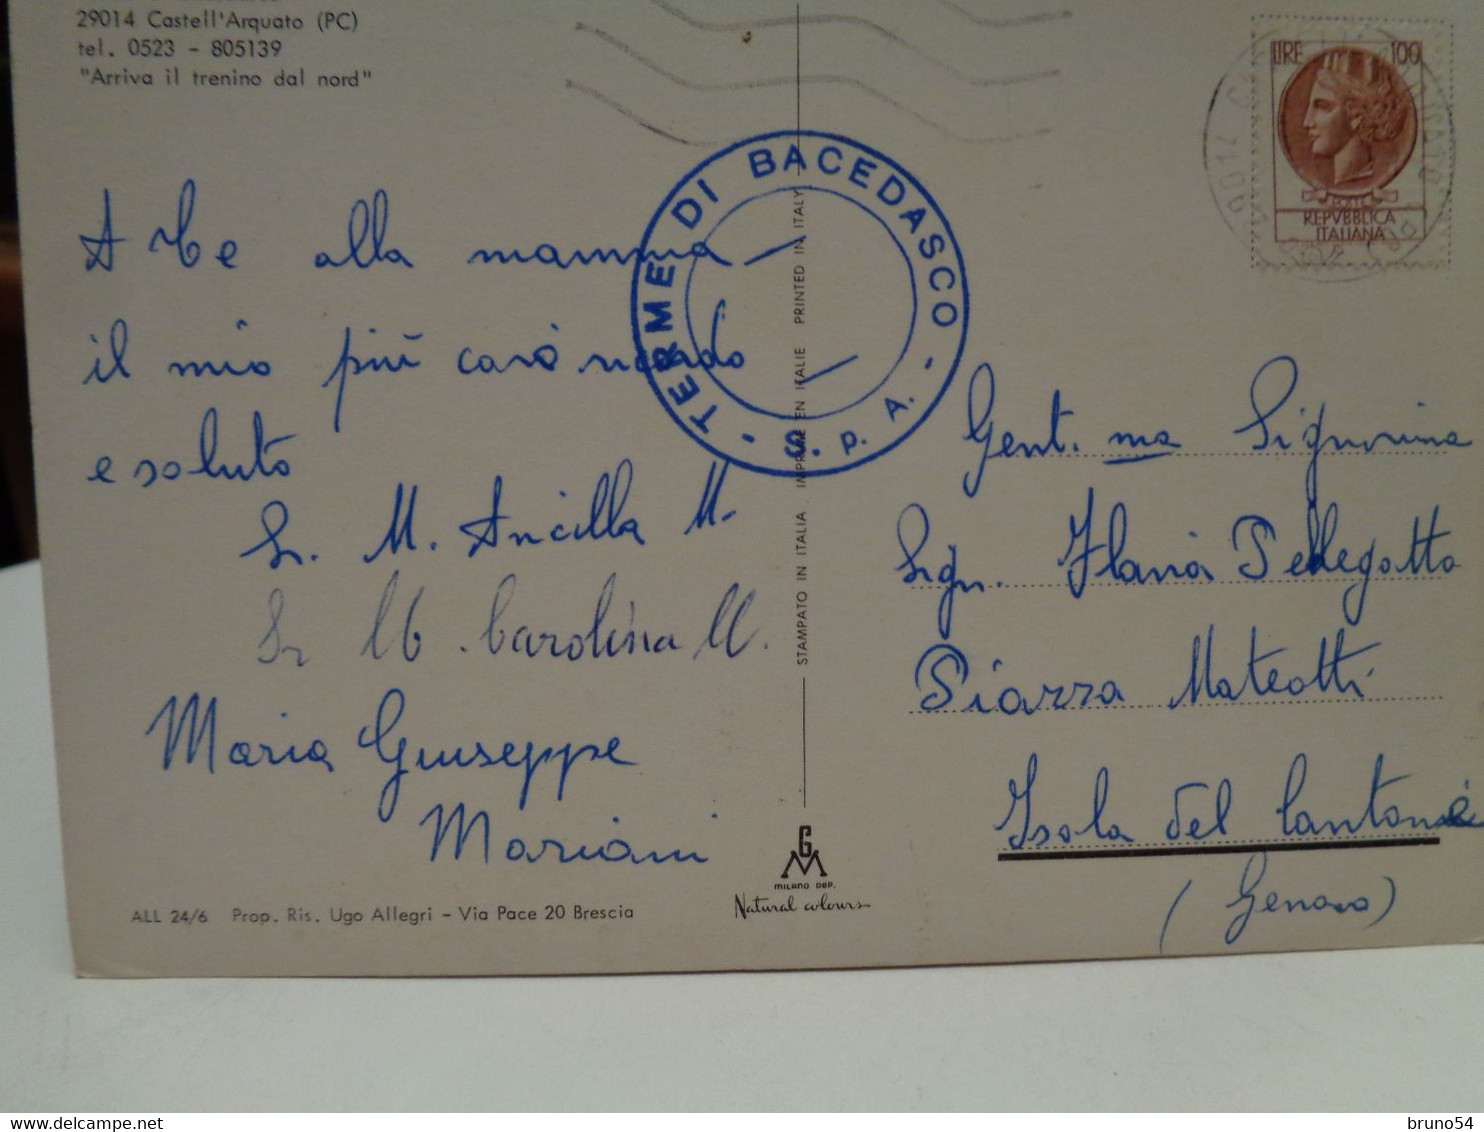 29014 Castell'Arquato (PC)
tel. 0523 - 805139
"Arriva il trenino dal nord"
LIRE 100
POSTE
REPVBBLICA
ITALIANA
- TERME DI BACEDASCO - S.p.A.
A Te alla mamma
il mio più caro ricordo
e saluto
Sr. M. Ancilla M.
Sr M. Carolina M.
Maria Giuseppe
Mariani
Gent.ma Signorina
Sign. Flavia Pellegatta
Piazza Mateotti
Isola del Cantone
(Genova)
STAMPATO IN ITALIA. IMPRIME EN ITALIE PRINTED IN ITALY
GM
MILANO DEP.
Natural colours
ALL 24/6 Prop. Ris. Ugo Allegri - Via Pace 20 Brescia
bruno54